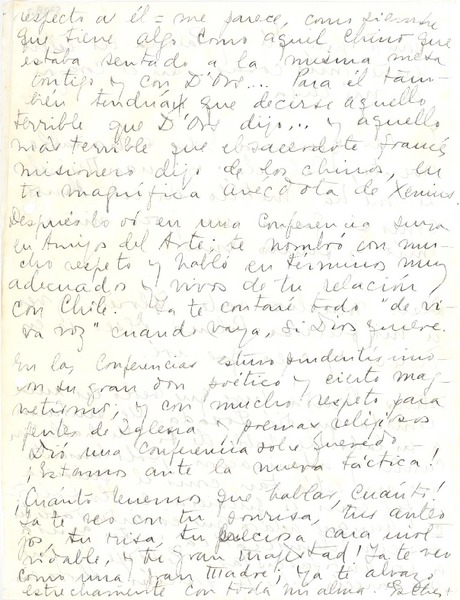 respecto a él = me parece, como siempre
que tiene algo como aquel chino que
estaba sentado a la misma mesa
contigo y con D'Ors... Para él tam-
bién tendrá que decirse aquello
terrible que D'Ors dijo... y aquello
más terrible que el sacerdote francés
misionero dijo de los chinos, en
tu magnífica anécdota de Xenius.
Después lo oí en una Conferencia suya
en Amigos del Arte: te nombró con mu-
cho respeto y habló en términos muy
adecuados y vivos de tu relación,
con Chile. Ya te contaré todo "de vi-
va voz" cuando vaya, si Dios quiere.
En las Conferencias estuvo prudentísimo
con su gran don poético y cierto mag-
netismo, y con mucho respeto para
gentes de Iglesia y premas religiosos
Dió una Conferencia sobre Quevedo
¡Estamos ante la nueva táctica!
¡Cuánto tenemos que hablar, cuánto!
Ya te veo con tu sonrisa, tus anteo
jos, tu risa, tu preciosa cara inol-
vidable, y tu gran majestad! Ya te veo
como una gran Madre; ya te abrazo
estrechamente con toda mi alma. Esther